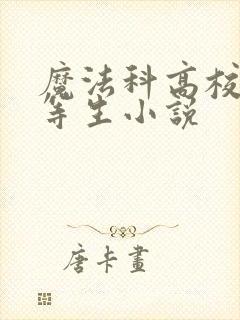 魔法科高校
等生小説
唐卡畫